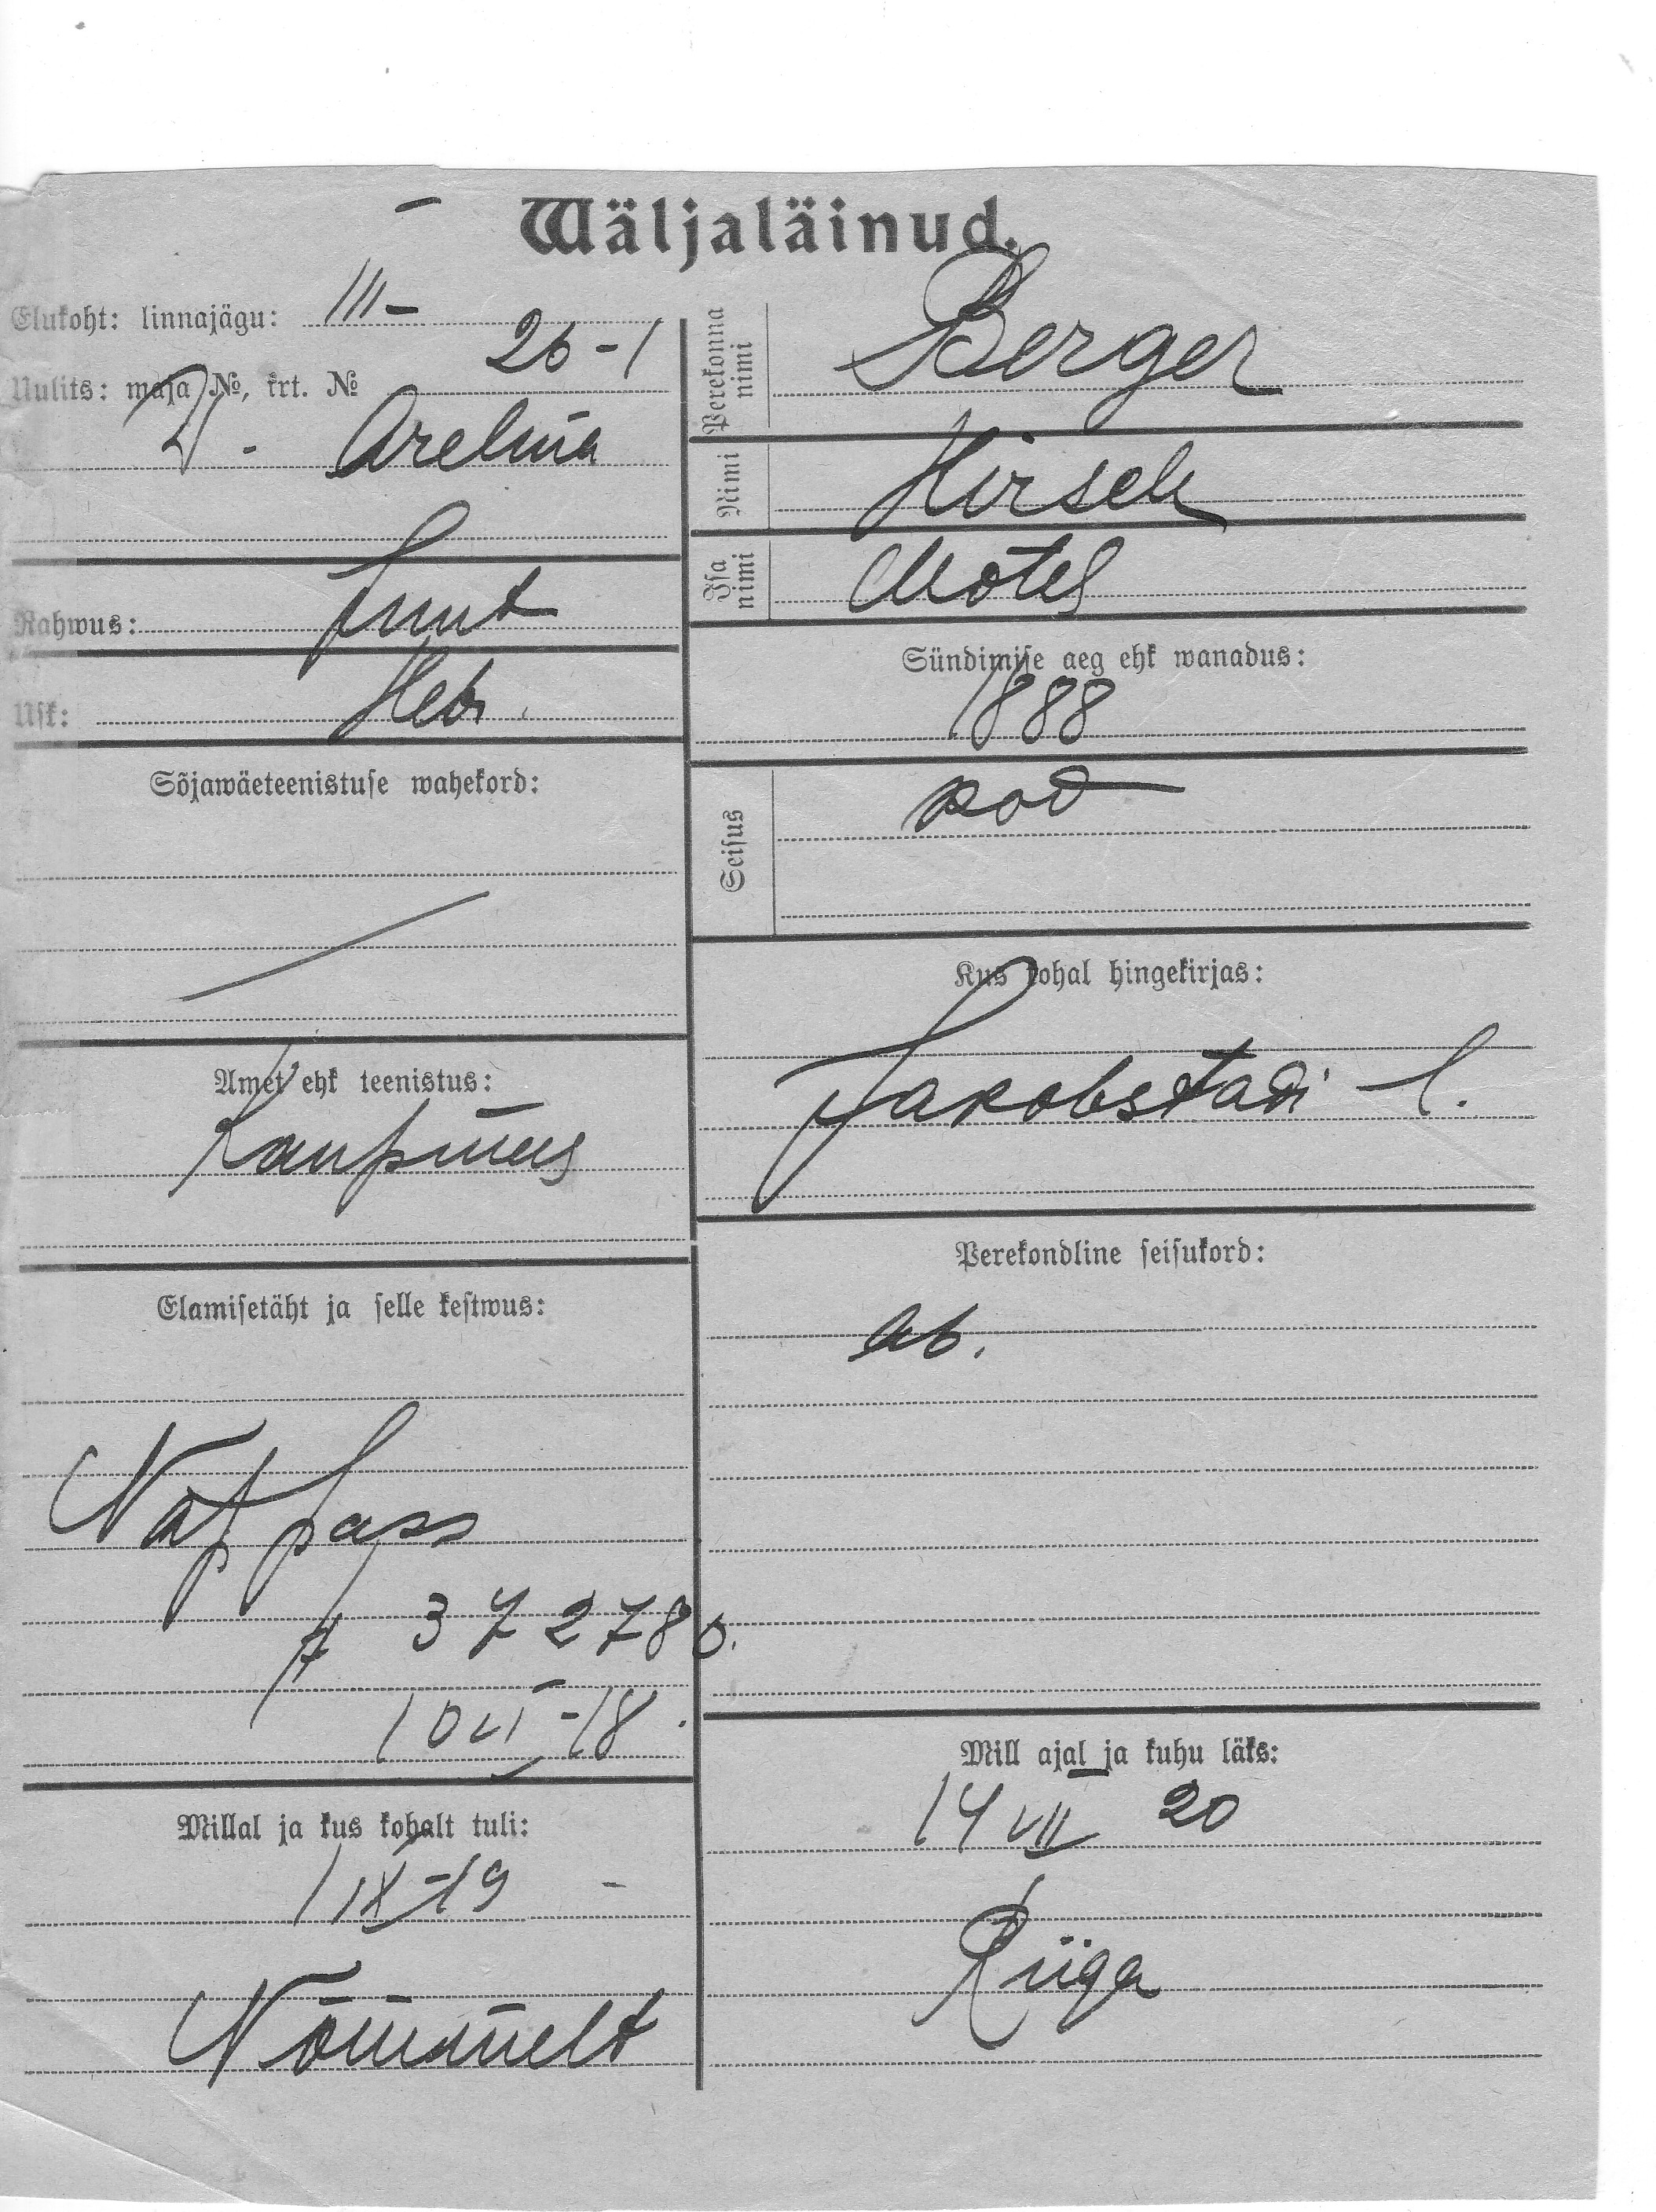 Wäljaläinud.
Elukoht: linnajägu: III-
Uulits: maja №, krt. № 26-1
Perekonna nimi
Berger
Nimi
Hirsch
Isa nimi
Motel
Rahwus: Juut
Usk: Hebr.
Sõjawäeteenistuse wahekord:
Amet ehk teenistus:
Kaupmees
Elamisetäht ja selle kestwus:
Nat pass
372780.
10 VI-18.
Millal ja kus kohalt tuli:
1 IX-19 -
Nõmmelt
Sündimise aeg ehk wanadus:
1888
Seisus
kod
Kus kohal hingekirjas:
Jakobstadi l.
Perekondline seisukord:
ab.
Mill ajal ja kuhu läks:
14 VII 20
Riiga